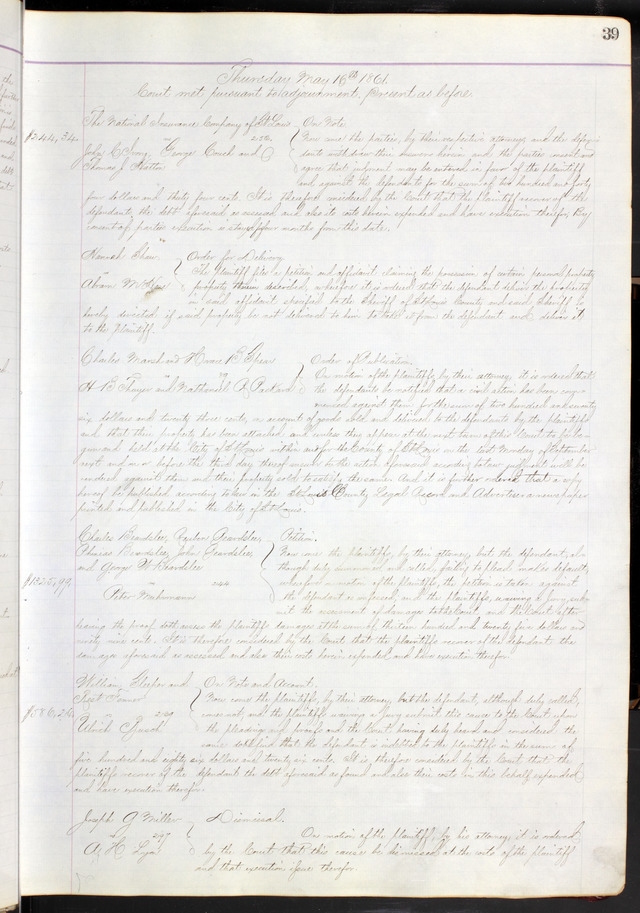 39
Thursday May 16th 1861.
Court met pursuant to adjournment, present as before.
The National Insurance Company of St Louis On Note
$244,34. 258 Now come the parties, by their respective attorneys, and the defen-
John C. Ivory, George Couch and dants withdraw their answer herein and the parties
Thomas J. agree that judgment may be entered in favor of the plaintiff
and against the defendants for the sum of two hundred and forty
four dollars and thirty four cents. It is therefore considered by the Court that the plaintiff recover of the
defendants, the debt aforesaid as assessed and also its costs herein expended and have execution therefor. By
consent of parties execution is stayed four months from this date.
Hannah Shaw Order for Delivery
The plaintiff files a petition and affidavit claiming the possession of certain personal property
Abram property therein described, wherefore it is ordered that the defendant deliver the property
in said affidavit specified to the Sheriff of St Louis County and said Sheriff is
hereby directed if said property be not delivered to him to take it from the defendant and deliver it
to the plaintiff.
Charles Marsh and B. Spear Order of Publication.
On motion of the plaintiffs, by their attorney, it is ordered that
H. B. Thayer and Nathaniel R. Packard the defendants be notified that a civil action has been com-
menced against them for the sum of two hundred and seventy
six dollars and twenty three cents, on account of goods sold and delivered to the defendants by the plaintiffs
and that their property has been attached, and unless they appear at the next term of this Court to be be-
gun and held at the City of St Louis within and for the County of St Louis on the last Monday of September
next and on or before the third day thereof answer to the action aforesaid according to law judgment will be
rendered against them and their property sold to satisfy the same. And it is further ordered, that a copy
hereof be published according to law in the St Louis County Legal Record and Advertiser a newspaper
printed and published in the City of St Louis.
Charles Beardslee, Beardslee, Petition.
Phineas Beardslee, John Beardslee, Now come the plaintiffs, by their attorney, but the defendant, al-
and George W. Beardslee though duly summoned and called, failing to plead, makes default,
$1325,99 244 wherefore on motion of the plaintiffs, the petition is taken against
Peter the defendant as confessed, and the plaintiffs, waiving a jury, sub-
mit the assessment of damages to the Court, and the Court after
hearing the proof doth assess the plaintiffs damages at the sum of thirteen hundred and twenty five dollars and
ninety nine cents. It is therefore considered by the Court that the plaintiffs recover of the defendant the
damages aforesaid as assessed and also their costs herein expended and have execution therefor.
William Sleeper and On Note and Account.
Now come the plaintiffs, by their attorney but the defendant, although duly called,
$586,26 269 comes not, and the plaintiffs waiving a jury submit this cause to the Court upon
Ulrich the pleadings and proofs and the Court having duly heard and considered the
same doth find that the defendant is indebted to the plaintiffs in the sum of
five hundred and eighty six dollars and twenty six cents. It is, therefore considered by the Court that the
plaintiffs recover of the defendant the debt aforesaid as found and also their costs in this behalf expended
and have execution therefor.
Joseph G. Miller Dismissal.
297 On motion of the plaintiff, by his attorney, it is ordered
A. H. by the Court that this cause be dismissed at the costs of the plaintiff
and that execution issue therefor.